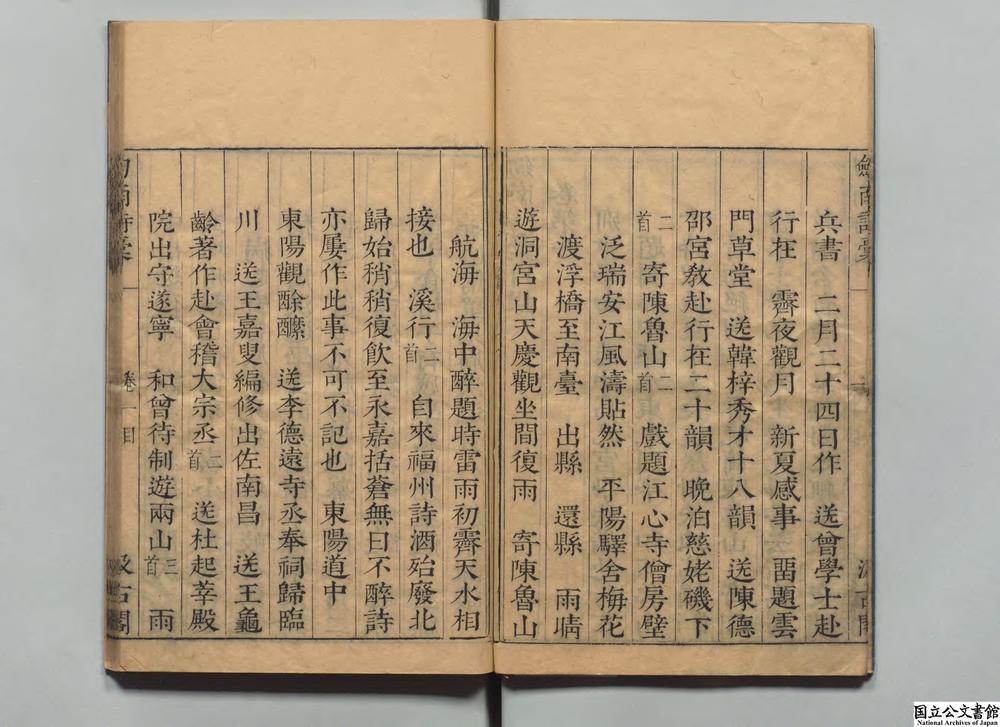 兵書　二月二十四日作　送曾學士赴
行在　霽夜觀月　新夏感事　畱題雲
門草堂　送韓梓秀才十八韻　送陳德
邵宮敎赴行在二十韻　晩泊慈姥磯下
二首　寄陳魯山二首　戲題江心寺僧房壁
泛瑞安江風濤貼然　平陽驛舍梅花
渡浮橋至南臺　出縣　還縣　雨晴
遊洞宮山天慶觀坐間復雨　寄陳魯山
航海　海中醉題時雷雨初霽天水相
接也　溪行二首　自來福州詩酒殆廢北
歸始稍稍復飮至永嘉括蒼無日不醉詩
亦屢作此事不可不記也　東陽道中
東陽觀酴醾　送李德遠寺丞奉祠歸臨
川　送王嘉叟編修出佐南昌　送王龜
齡著作赴會稽大宗丞二首　送杜起莘殿
院出守遂寧　和曾待制遊兩山三首　雨
卷一目
汲古閣
国立公文書館
National Archives of Japan